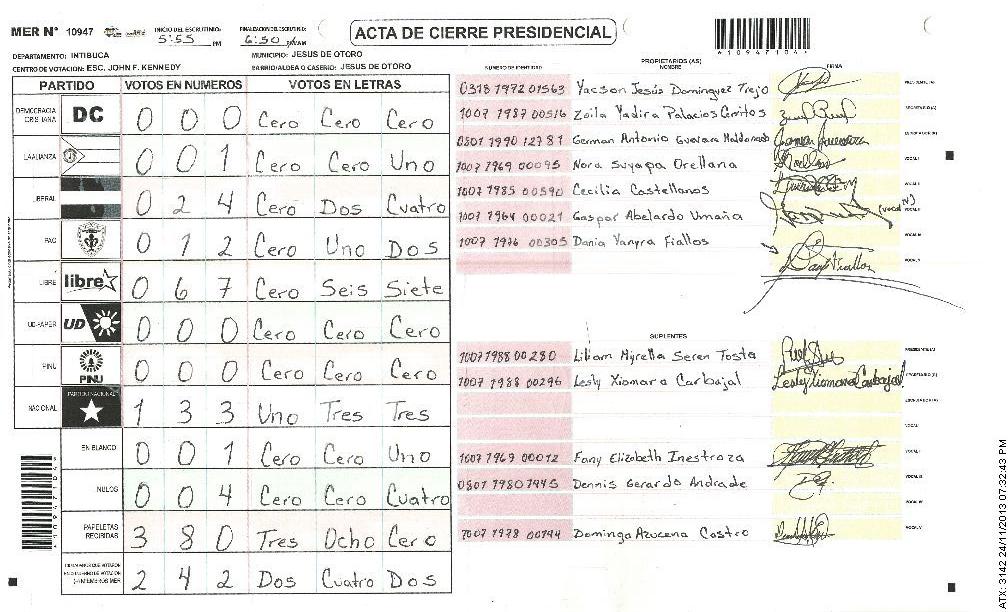 MER N° 10947
INICIO DEL ESCRUTINIO: 5:55 PM
FINALIZACION DEL ESCRUTINIO: 6:50 PM/AM
ACTA DE CIERRE PRESIDENCIAL
A10947104
DEPARTAMENTO: INTIBUCA
MUNICIPIO: JESUS DE OTORO
CENTRO DE VOTACION: ESC. JOHN F. KENNEDY
BARRIO/ALDEA O CASERIO: JESUS DE OTORO
PARTIDO VOTOS EN NUMEROS VOTOS EN LETRAS
DEMOCRACIA CRISTIANA DC 0 0 0 Cero Cero Cero
LA ALIANZA 0 0 1 Cero Cero Uno
LIBERAL 0 2 4 Cero Dos Cuatro
PAC 0 1 2 Cero Uno Dos
LIBRE libre 0 6 7 Cero Seis Siete
UD-FAPER UD 0 0 0 Cero Cero Cero
PINU PINU 0 0 0 Cero Cero Cero
NACIONAL PARTIDO NACIONAL 1 3 3 Uno Tres Tres
EN BLANCO 0 0 1 Cero Cero Uno
NULOS 0 0 4 Cero Cero Cuatro
PAPELETAS RECIBIDAS 3 8 0 Tres Ocho Cero
2 4 2 Dos Cuatro Dos
NUMERO DE IDENTIDAD PROPIETARIOS (AS) NOMBRE FIRMA
0318 1972 01563 Yacson Jesús Dominguez Trejo PRESIDENTE (A)
1007 1987 00516 Zoila Yadira Palacios Cerritos SECRETARIO (A)
0801 1990 12781 German Antonio Guevara Maldonado ESCRUTADOR (A)
1007 1969 00095 Nora Suyapa Orellana VOCAL I
1007 1985 00590 Cecilia Castellanos VOCAL II
1007 1964 00021 Gaspar Abelardo Umaña (vocal IV)
1007 1976 00305 Dania Yanyra Fiallos VOCAL IV
VOCAL V
SUPLENTES
1007 1988 00280 Liliam Myrella Seren Tosta PRESIDENTE (A)
1007 1988 00296 Lesly Xiomara Carbajal Lesly Xiomara Carbajal SECRETARIO (A)
ESCRUTADOR (A)
VOCAL I
1007 1969 00012 Fany Elizabeth Inestroza VOCAL II
0801 1980 7445 Dennis Gerardo Andrade VOCAL III
VOCAL IV
1007 1978 00144 Dominga Azucena Castro VOCAL V
ATX: 3142 24/11/2013 07:32:43 PM